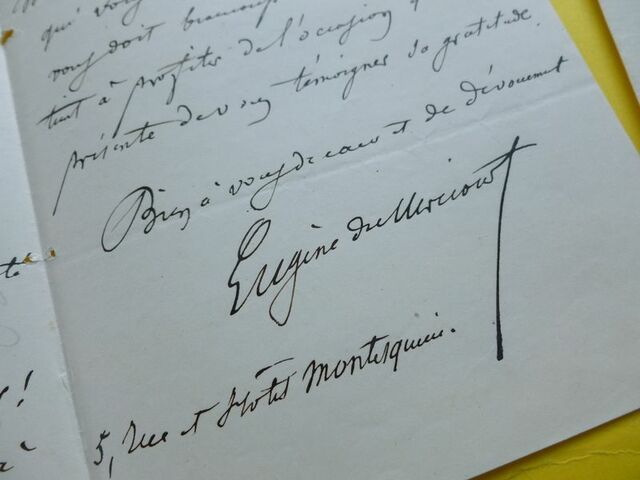 qui vous
vous doit beaucoup
tient à profiter de l'occasion q
présente de vous témoigner sa gratitude.
Bien à vous de cœur et de dévouement
Eugène de Mirecourt
5, rue et hôtel Montesquieu.
té
!
à